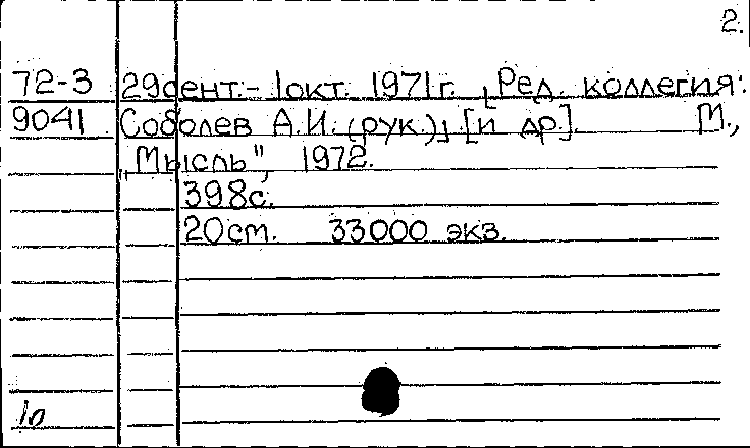 2.
72-3 29сент.- 1окт. 1971г. Ред. коллегия:
9041 Соболев А.И. (рук.) [и др.]. М.,
„Мысль", 1972.
398с.
20см. 33000 экз.
10